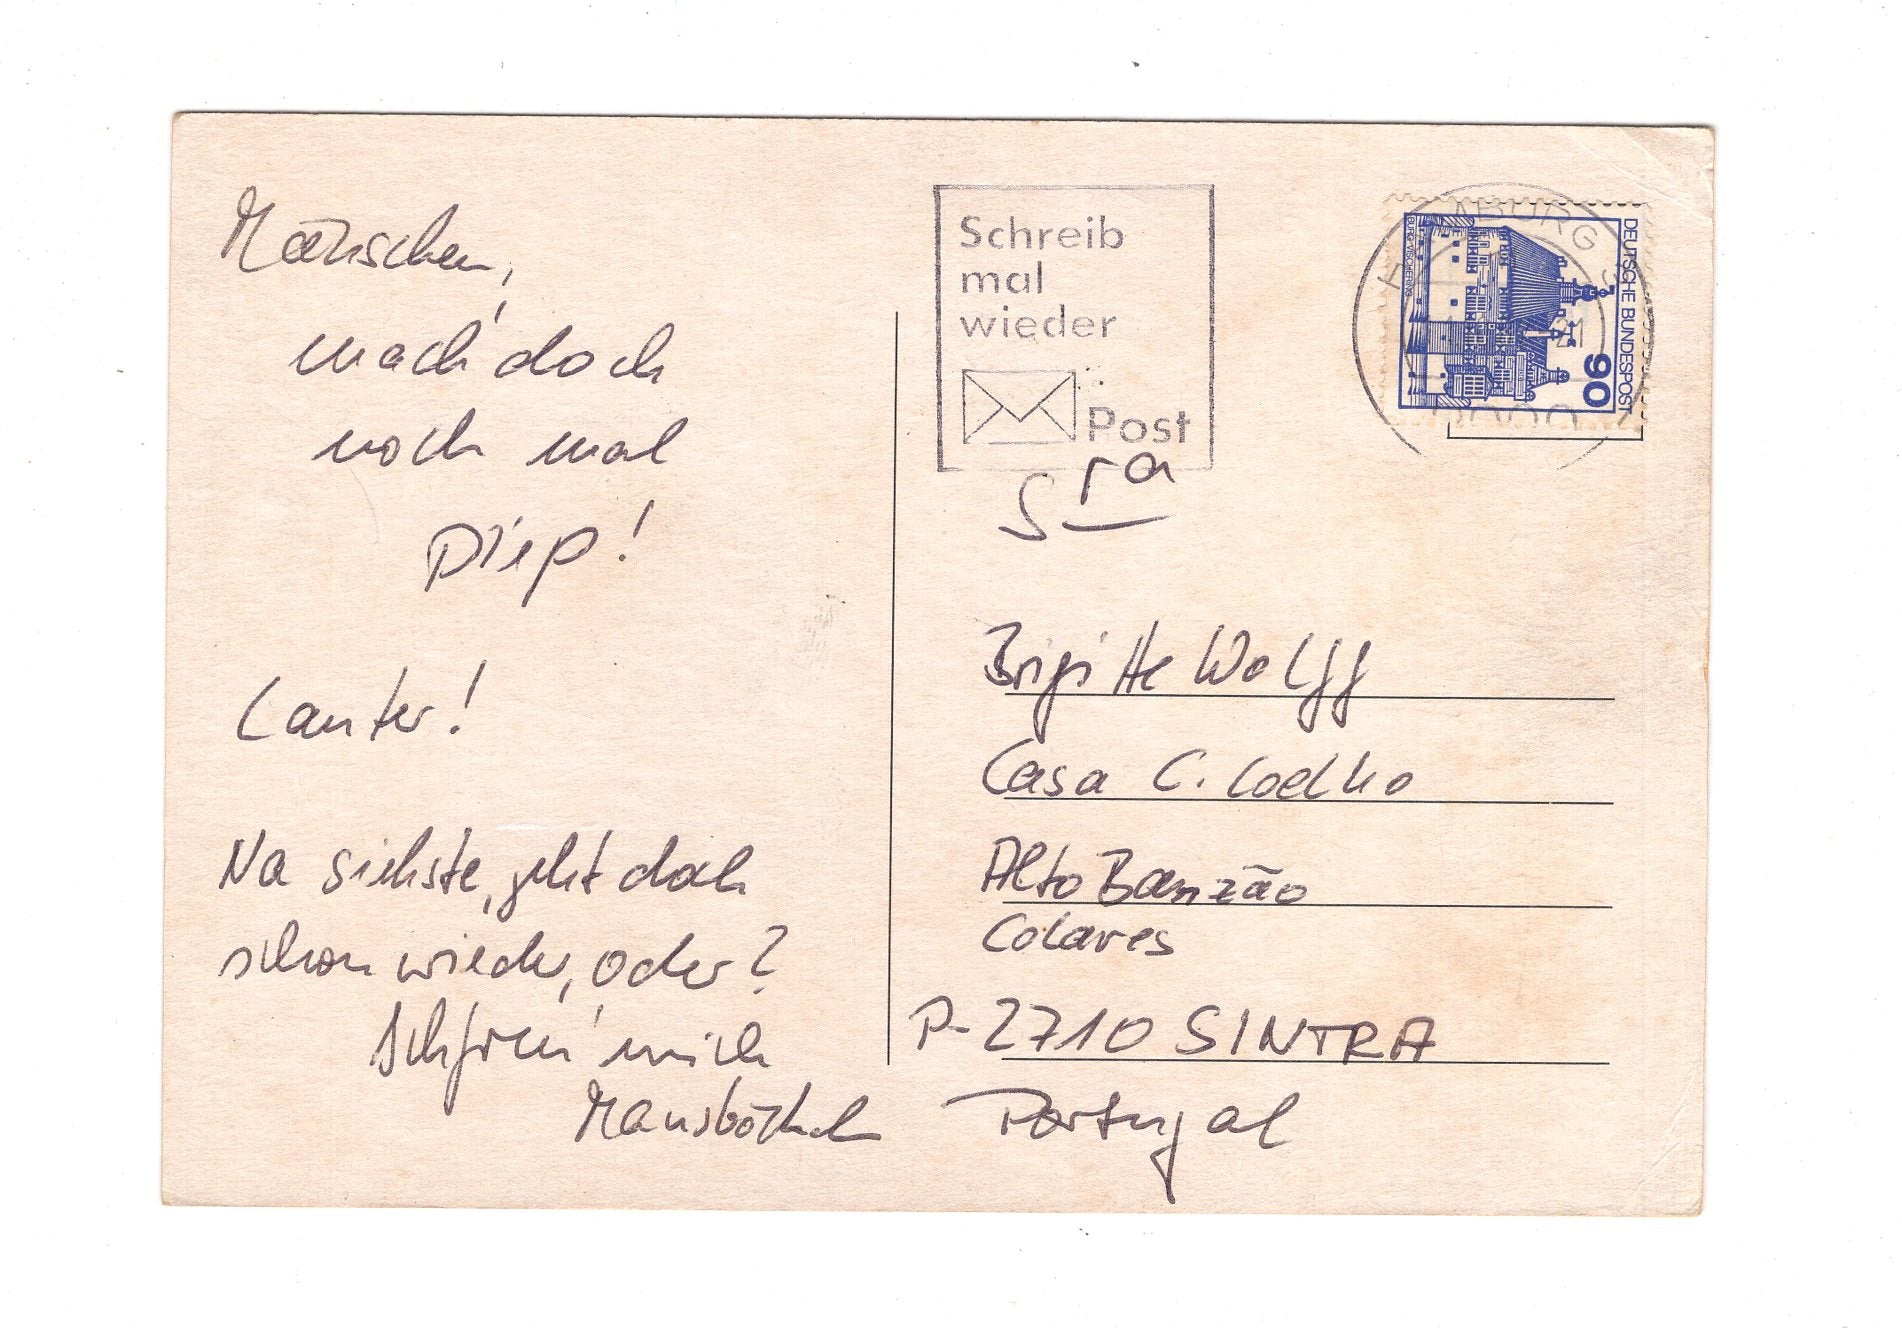 Mäuschen,
mach' doch
noch mal
Piep!
Lauter!
Na siehste, geht doch
schon wieder, oder?
mich
Schreib
mal
wieder
Post
Sra
Brigitte Wolff
Casa C. Coelho
Alto Banzão
Colares
P-2710 SINTRA
Portugal
DEUTSCHE BUNDESPOST
90
BURG VISCHERING
21